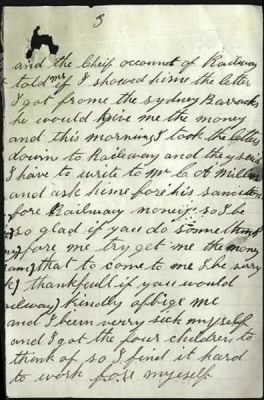 3
and the Cheif account of Railway
told me if I showed hime the letter
I got frome the sydney Barracks
he would give me the money
and this morning I took the letters
down to Raileway and they said
I have to write to Mr C of Millen
and ask hime fore his sanction
fore Railway money so I be
so glad if you do somethink
fore me try get me the money
that to come to me I be
thankfull if you would
kindly oblige me
and I burn verry sick myself
and I got the four children to
think of so I find it hard
to work fore myself